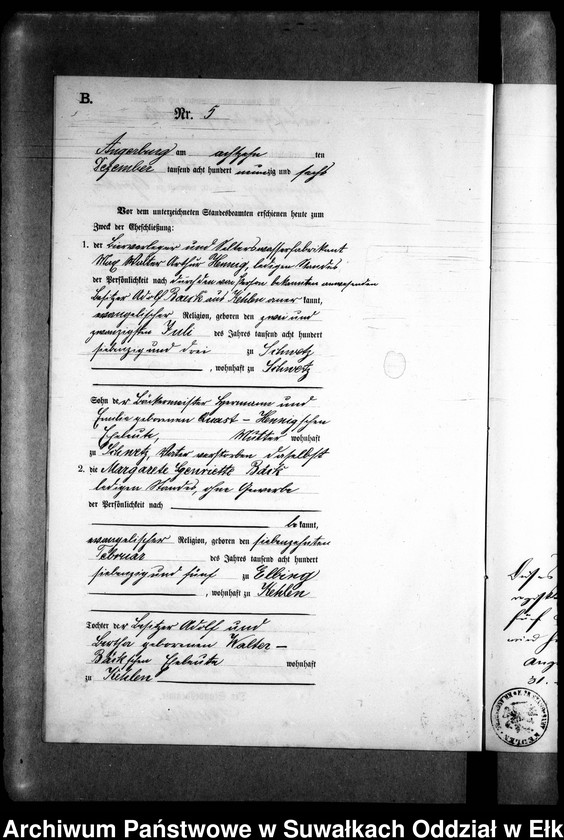 B.
Nr. 5
Angerburg am achtzehn ten
Dezember tausend acht hundert neunzig und sechs
Vor dem unterzeichneten Standesbeamten erschienen heute zum
Zweck der Eheschließung:
1. der Bierverleger und Selterswasserfabrikant
Max Walter Arthur Hennig, ledigen Standes
der Persönlichkeit nach durch den von Person bekannten anwesenden
Besitzer Adolf Baeck aus Kehlen anerkannt,
evangelischer Religion, geboren den zwei und
zwanzigsten Juli des Jahres tausend acht hundert
siebenzig und drei zu Schwetz
, wohnhaft zu Schwetz
Sohn der Bäckermeister Hermann und
Emilie geborenen Quast - Hennigschen
Eheleute, Mutter wohnhaft
zu Schwetz, Vater verstorben daselbst
2. die Margarete Henriette Bäck
ledigen Standes, ohne Gewerbe
der Persönlichkeit nach
bekannt,
evangelischer Religion, geboren den siebenzehnten
Februar des Jahres tausend acht hundert
siebenzig und fünf zu Elbing
, wohnhaft zu Kehlen
Tochter der Besitzer Adolf und
Bertha geborenen Walter -
Bäckschen Eheleute wohnhaft
zu Kehlen
31.
Archiwum Państwowe w Suwałkach Oddział w Ełk